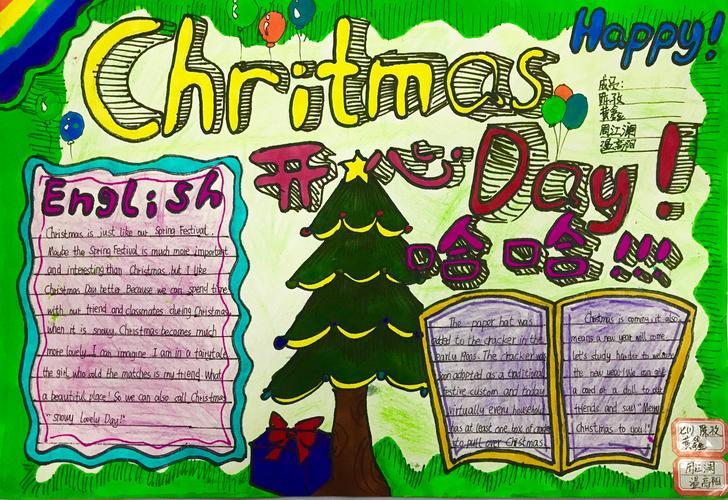 Chritmas
Happy!
成员:
陈孜
黄鑫
周江澜
温高阳
开心Day!
哈哈!!!
English
Christmas is just like our Spring Festival.
Maybe the Spring Festival is much more important
and interesting than Christmas, but I like
Christmas Day better. Because we can spend time
with our friend and classmates during Christmas
when it is snowy. Christmas becomes much
more lovely. I can imagine I am in a fairytale
the girl who sold the matches is my friend. What
a beautiful place! So we can also call Christmas
"snowy Lovely Day!"
The paper hat was
added to the cracker in the
early 1900s. The cracker was
soon adopted as a traditional
festive custom and today
virtually every household
has at least one box of
to pull over Christmas.
Christmas is coming, it also
means a new year will come.
let's study harder to
the new year! We can give
a card or a doll to our
friends and say "Merry
Christmas to you!"
陈孜
黄鑫
周江澜
温高阳